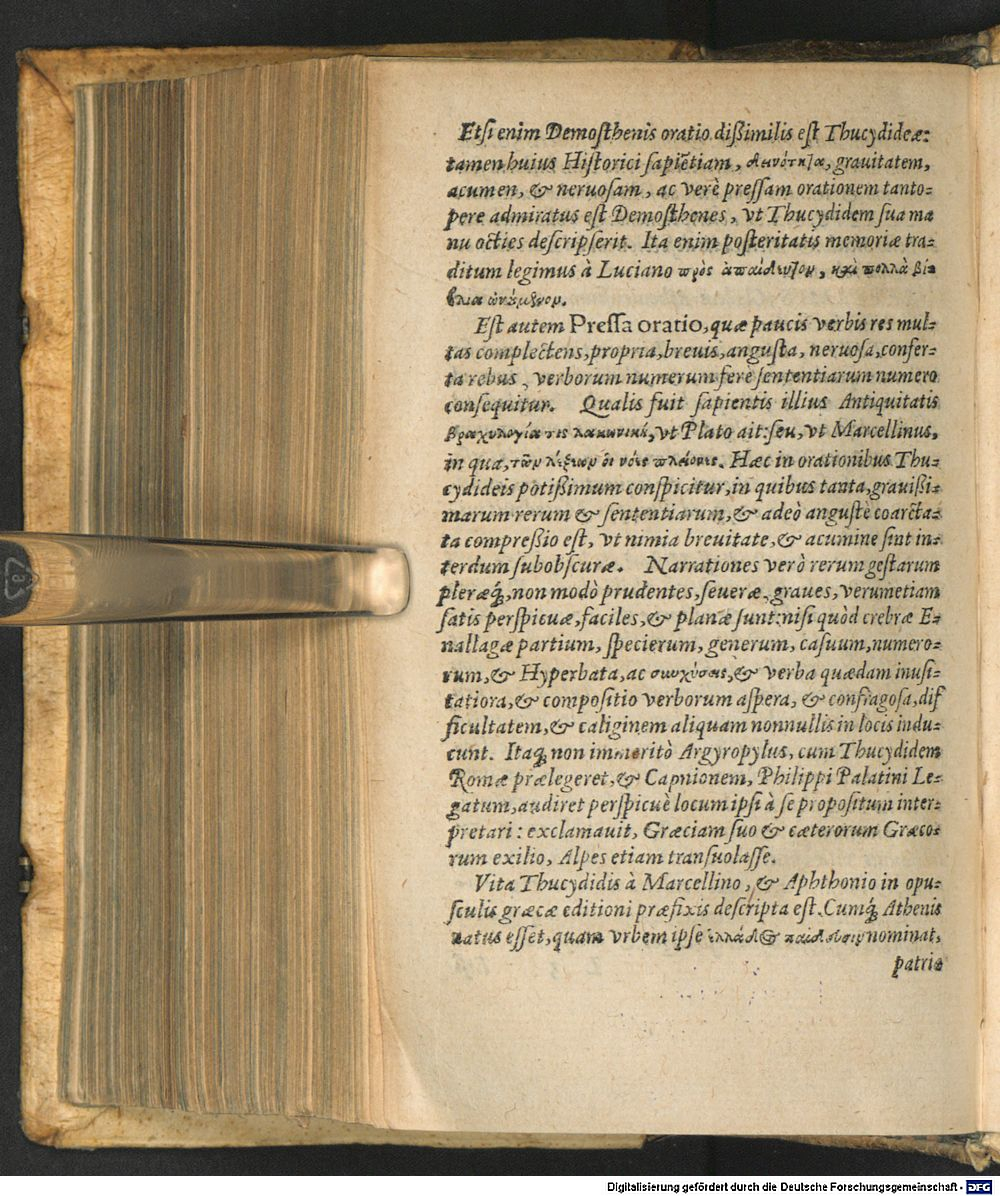 Etſi enim Demoſthenis oratio dißimilis eſt Thucydideæ:
tamen huius Hiſtorici ſapiẽtiam, δεινότητα, grauitatem,
acumen, & neruoſam, ac verè preſſam orationem tanto-
pere admiratus eſt Demoſthenes, vt Thucydidem ſua ma
nu octies deſcripſerit. Ita enim poſteritatis memoriæ tra-
ditum legimus à Luciano πρὸς ἀπαίδευτον, καὶ πολλὰ βι-
βλία ὠνούμενον.
Eſt autem Preſſa oratio, quæ paucis verbis res mul-
tas complectens, propria, breuis, anguſta, neruoſa, confer-
ta rebus, verborum numerum fere ſententiarum numero
conſequitur. Qualis fuit ſapientis illius Antiquitatis
βραχυλογία τις λακωνική, vt Plato ait: ſeu, vt Marcellinus,
in qua, τῶν λέξεων οἱ νόες πλείονες. Hæc in orationibus Thu-
cydideis potißimum conſpicitur, in quibus tanta, grauißi-
marum rerum & ſententiarum, & adeò anguſtè coarcta-
ta compreßio eſt, vt nimia breuitate, & acumine ſint in-
terdum ſubobſcuræ. Narrationes verò rerum geſtarum
pleræq́, non modò prudentes, ſeueræ, graues, verumetiam
ſatis perſpicuæ, faciles, & planæ ſunt: niſi quòd crebræ E-
nallagæ partium, ſpecierum, generum, caſuum, numero-
rum, & Hyperbata, ac συγχύσεις, & verba quædam inuſi-
tatiora, & compoſitio verborum aſpera, & confragoſa, dif
ficultatem, & caliginem aliquam nonnullis in locis indu-
cunt. Itaq́ non immeritò Argyropylus, cum Thucydidem
Romæ prælegeret, & Capnionem, Philippi Palatini Le-
gatum, audiret perſpicuè locum ipſi à ſe propoſitum inter-
pretari: exclamauit, Græciam ſuo & cæterorum Græco-
rum exilio, Alpes etiam tranſuolaſſe.
Vita Thucydidis à Marcellino, & Aphthonio in opu-
ſculis græcæ editioni præfixis deſcripta eſt. Cumq́ Athenis
natus eſſet, quam vrbem ipſe ἑλλάδος παίδευσιν nominat,
patria
Digitalisierung gefördert durch die Deutsche Forschungsgemeinschaft - DFG